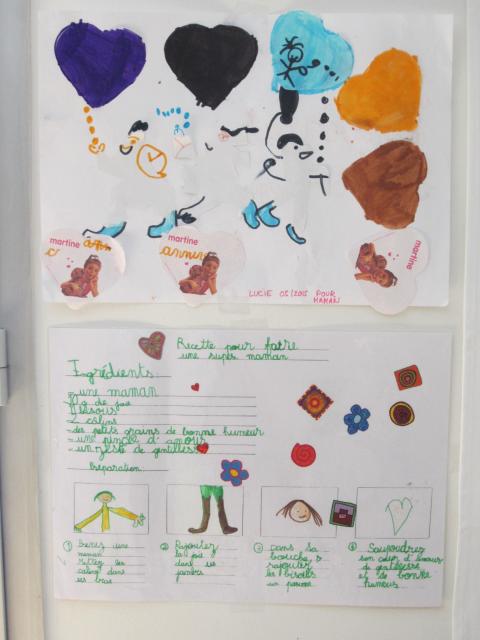 martine
martine
martine
LUCIE 05/2015 POUR
MAMAN
Recette pour faire
une super maman
Ingrédients
- une maman
g de joie
bisous
2 câlins
- des petits grains de bonne humeur
- une pincé d'amour
- un zeste de gentilless
Préparation
① Prenez une
maman
Mettez les
calins dans
ses bras
② Rajoutez
la joie
dans ses
jambes
③ dans sa
bouche,
rajoutez
les bisous
④ Saupoudrez
son cœur d'amour
de gentillesse
et de bonne
humeur